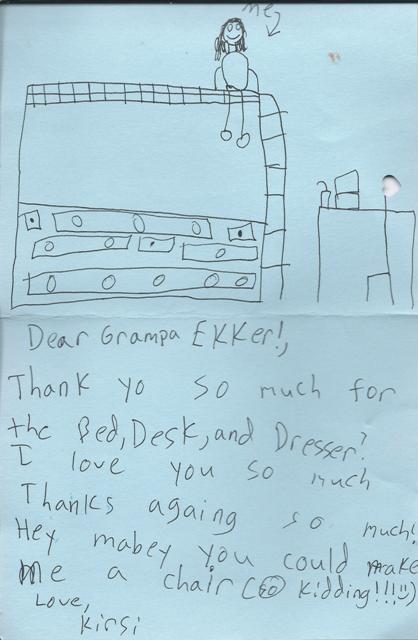 me
Dear Grampa EKKer!,
Thank yo so much for
the Bed, Desk, and Dresser!
I love you so much
Thanks againg so much!
Hey mabey you could make
me a chair (so kidding!!!:)
Love,
Kirsi